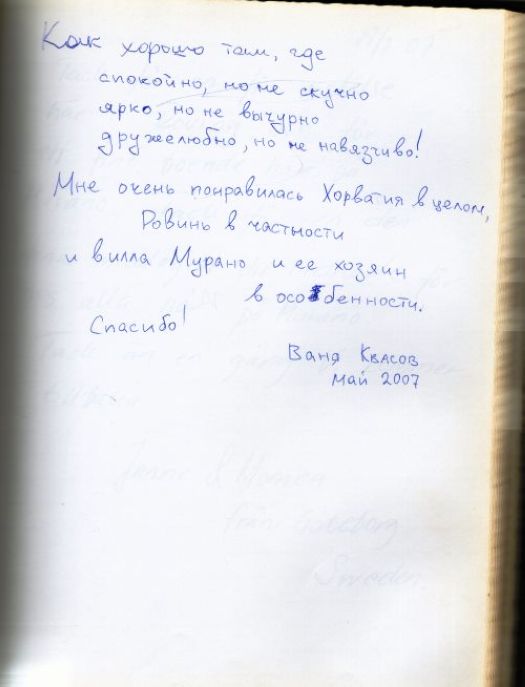 Как хорошо там, где
спокойно, но не скучно
ярко, но не вычурно
дружелюбно, но не навязчиво!
Мне очень понравилась Хорватия в целом,
Ровинь в частности
и вилла Мурано и ее хозяин
в особенности.
Спасибо!
Ваня Квасов
май 2007
Sweden